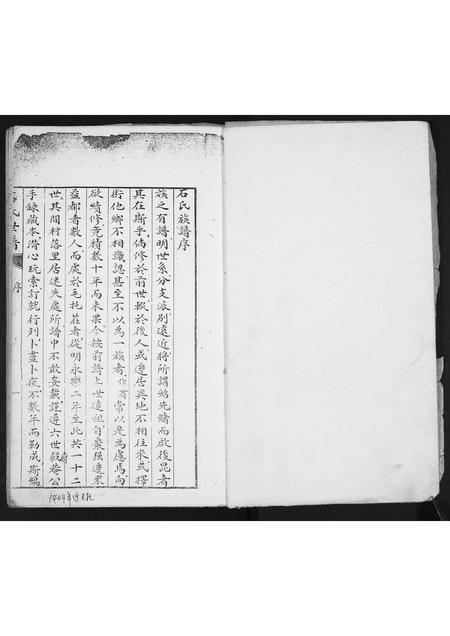 石氏族譜序
族之有譜明世系分支派別遠近將所謂紹先緒而啟後昆者
其在斯乎倘修於前世輟於後人或遷居異地不相往來或擇
術他鄉不相識認甚至不以為一族者作嘗以是為慮焉而
欲續修竟積數十年而未果今按前譜上世遠祖自棗强遷來
益都者數人而處於毛托莊者從明永樂二年至此共一十二
世其間村落里居迷失處所譜中不敢妄載謹遵六世毅菴公
手錄藏本潛心玩索訂就行列卜晝卜夜不數年而勤成斯編
石氏世譜
序
一